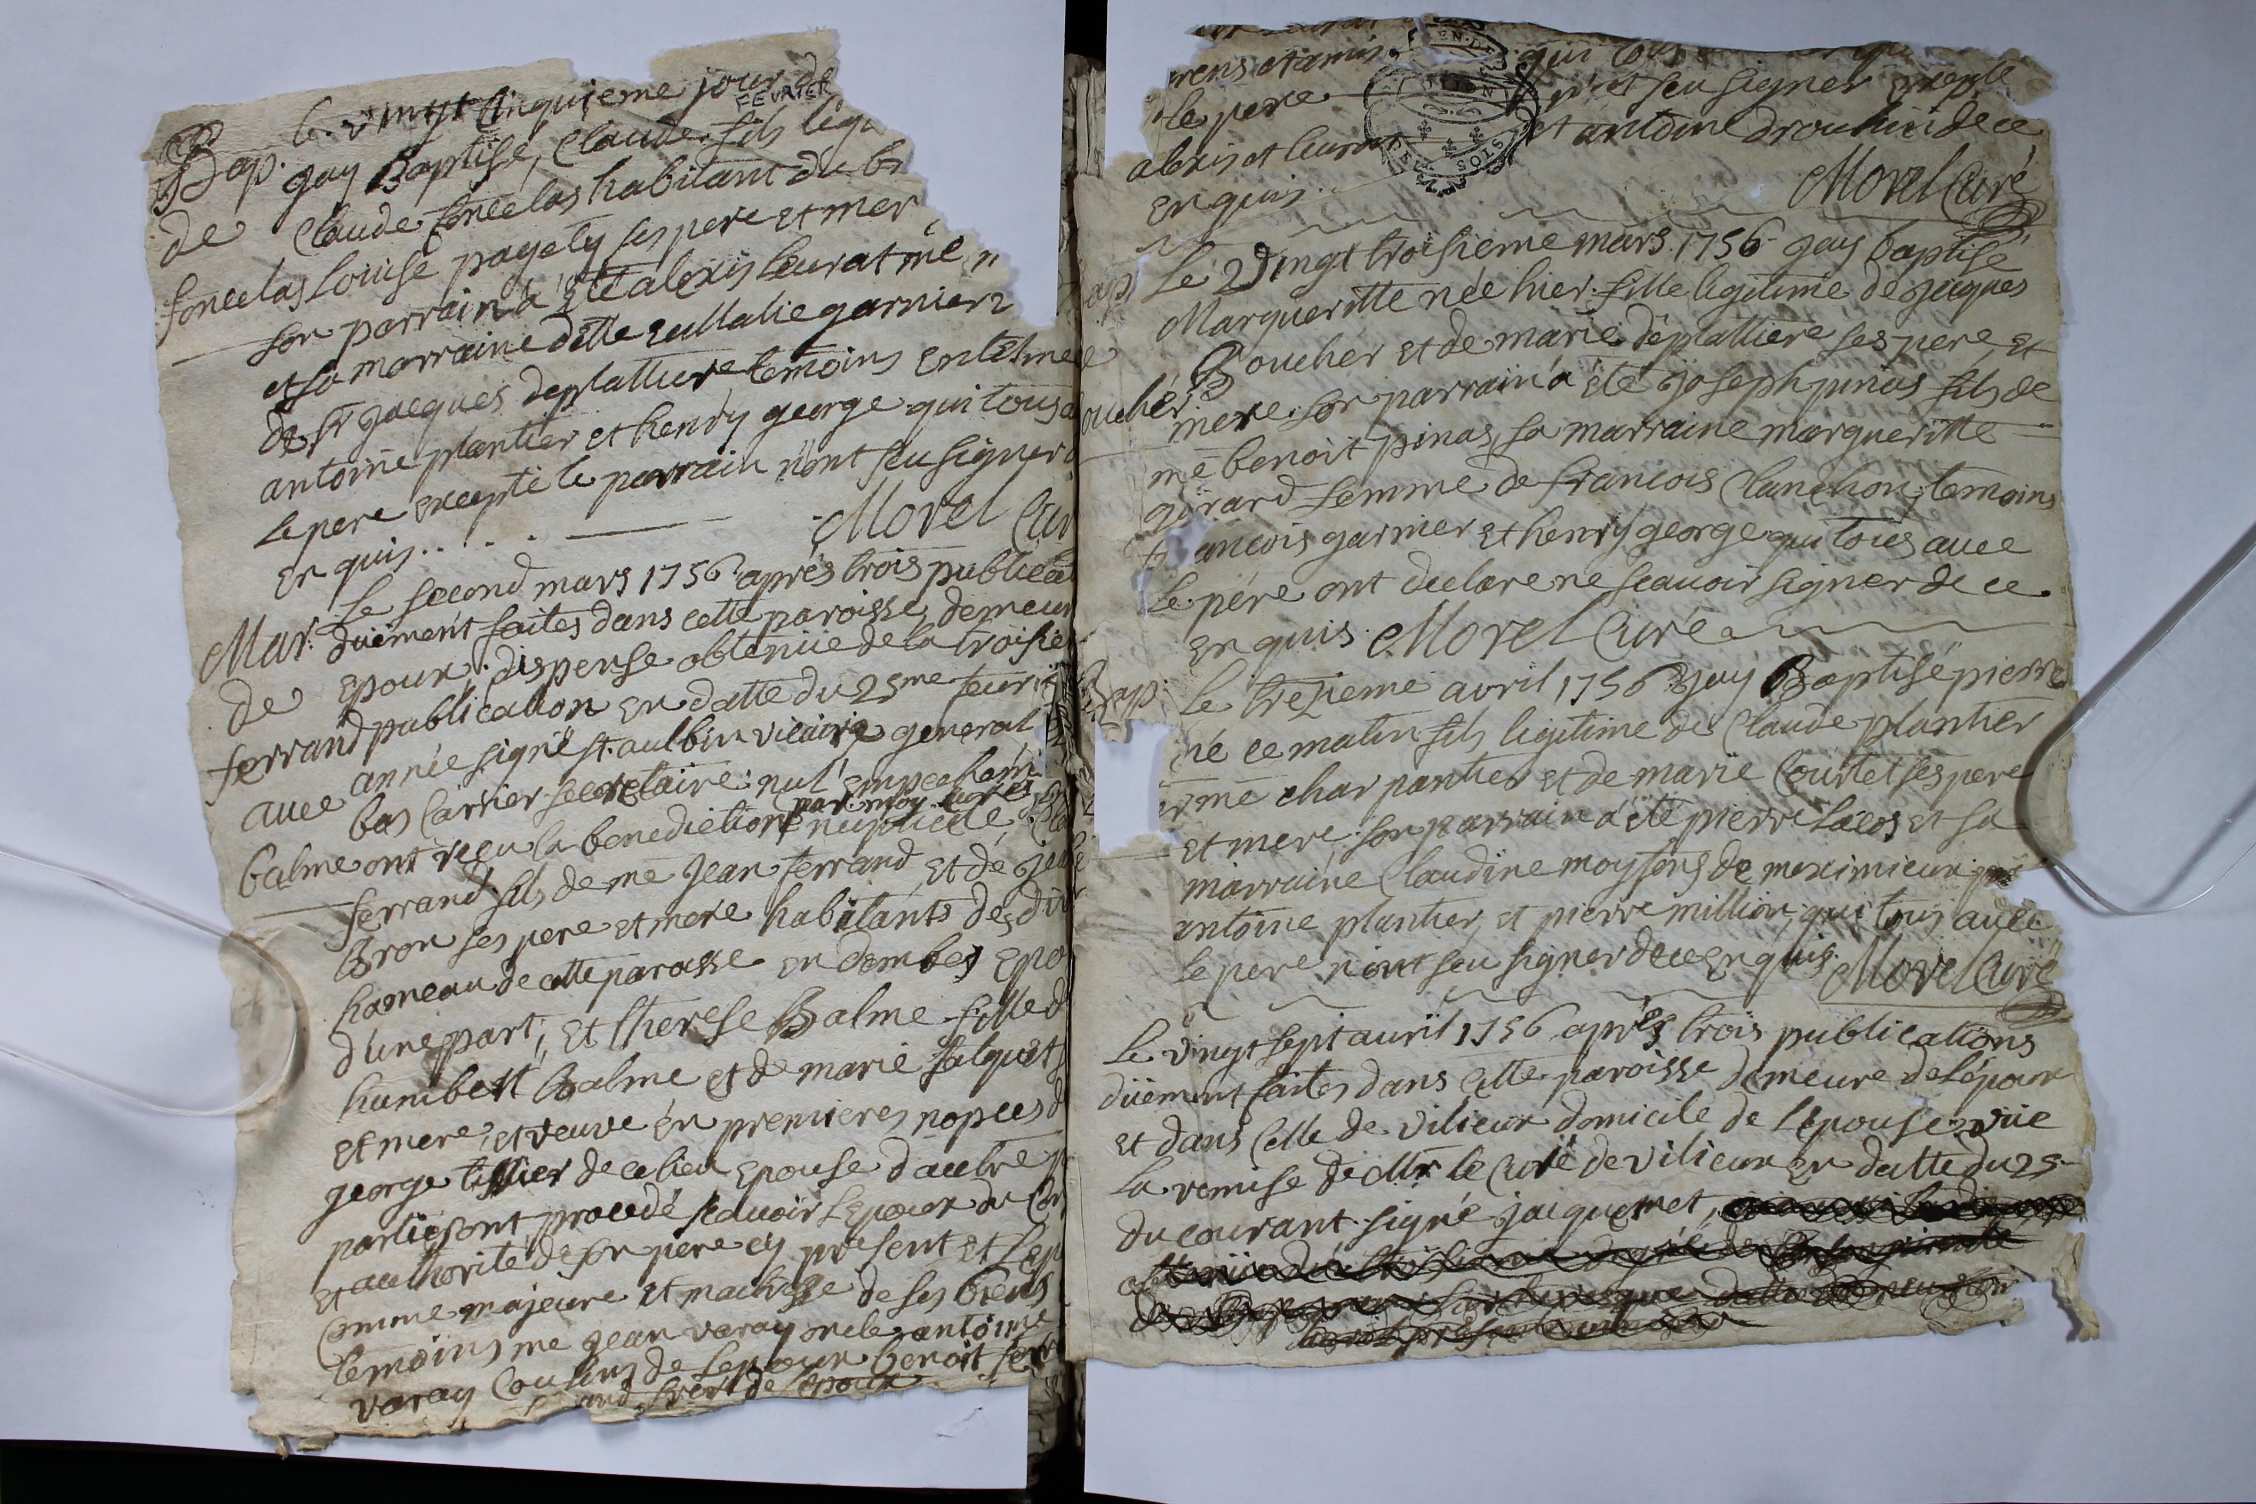 Bap. le vingt cinquieme jour de
FEVRIER
jay Baptisé, Claude fils legi
de Claude foncelas habitant de
foncelas Louise pagety ses pere et mer
son parrain a été alexis leurat me
et sa marraine dlle eullalie garnier
de sr jacques deplatture temoins
antoine plantier et henry george qui tous
le pere excepté le parrain n'ont seu signer
en quis. Morel Cur
Le second mars 1756 après trois publicat
Mar. düement faites dans cette paroisse, demeur
de epoux; dispense obtenüe de la troisie
ferrand publication en datte du 25me feuri
année signé st. aulbin vicaire general
avec bas Carrier secretaire: nul empechem
par moy curé
balme ont reçu la benediction nuptiale
ferrand fils de me Jean ferrand et de
Bron ses pere et mere habitants de
hameau de cette paroisse en dombes epo
d'une part; et therese Balme fille d
humbert Balme et de marie falquet
et mere, et veuve en premieres nopces d
george tissier de ce lieu epouse d'autre p
parties ont procedé scavoir l'epoux du
et authorité de son pere cy present et l'ep
comme majeure et maitresse de ses biens
temoins me jean varay oncle antoine
varay cousins de l'epoux benoit ferr
and frere de l'epoux
rens et amis qui tous
le pere n'ont seu signer excepté
alexis et leurat et antoine drouhin de ce
enquis. Morel Curé
Bap Le vingt troisieme mars 1756 jay baptisé
Margueritte née hier fille legitime de Jacques
Boucher et de marie deplattiere ses pere et
oucher mere son parrain a été joseph pinas fils de
me benoit pinas, sa marraine margueritte
gerard femme de francois Clanchon, temoins
francois garnier et henry george qui tous avec
le pére ont declaré ne scauoir signer de ce
en quis. Morel Curé
Bap. Le trezieme avril 1756 jay Baptisé pierre
né ce matin fils legitime de Claude plantier
me charpantier et de marie Courtet ses pere
et mere son parrain a été pierre et sa
marraine Claudine moyssons de meximieux
antoine plantier, et pierre million, qui tous avec
le pere n'ont seu signer de ce enquis. Morel Curé
Le vingt sept auril 1756 après trois publications
düement faites dans cette paroisse demeure de l'epoux
et dans celle de vilieux domicile de l'epouse vüe
la remise de Mr le Curé de vilieux en datte du 25
du courant signé jacquemet,